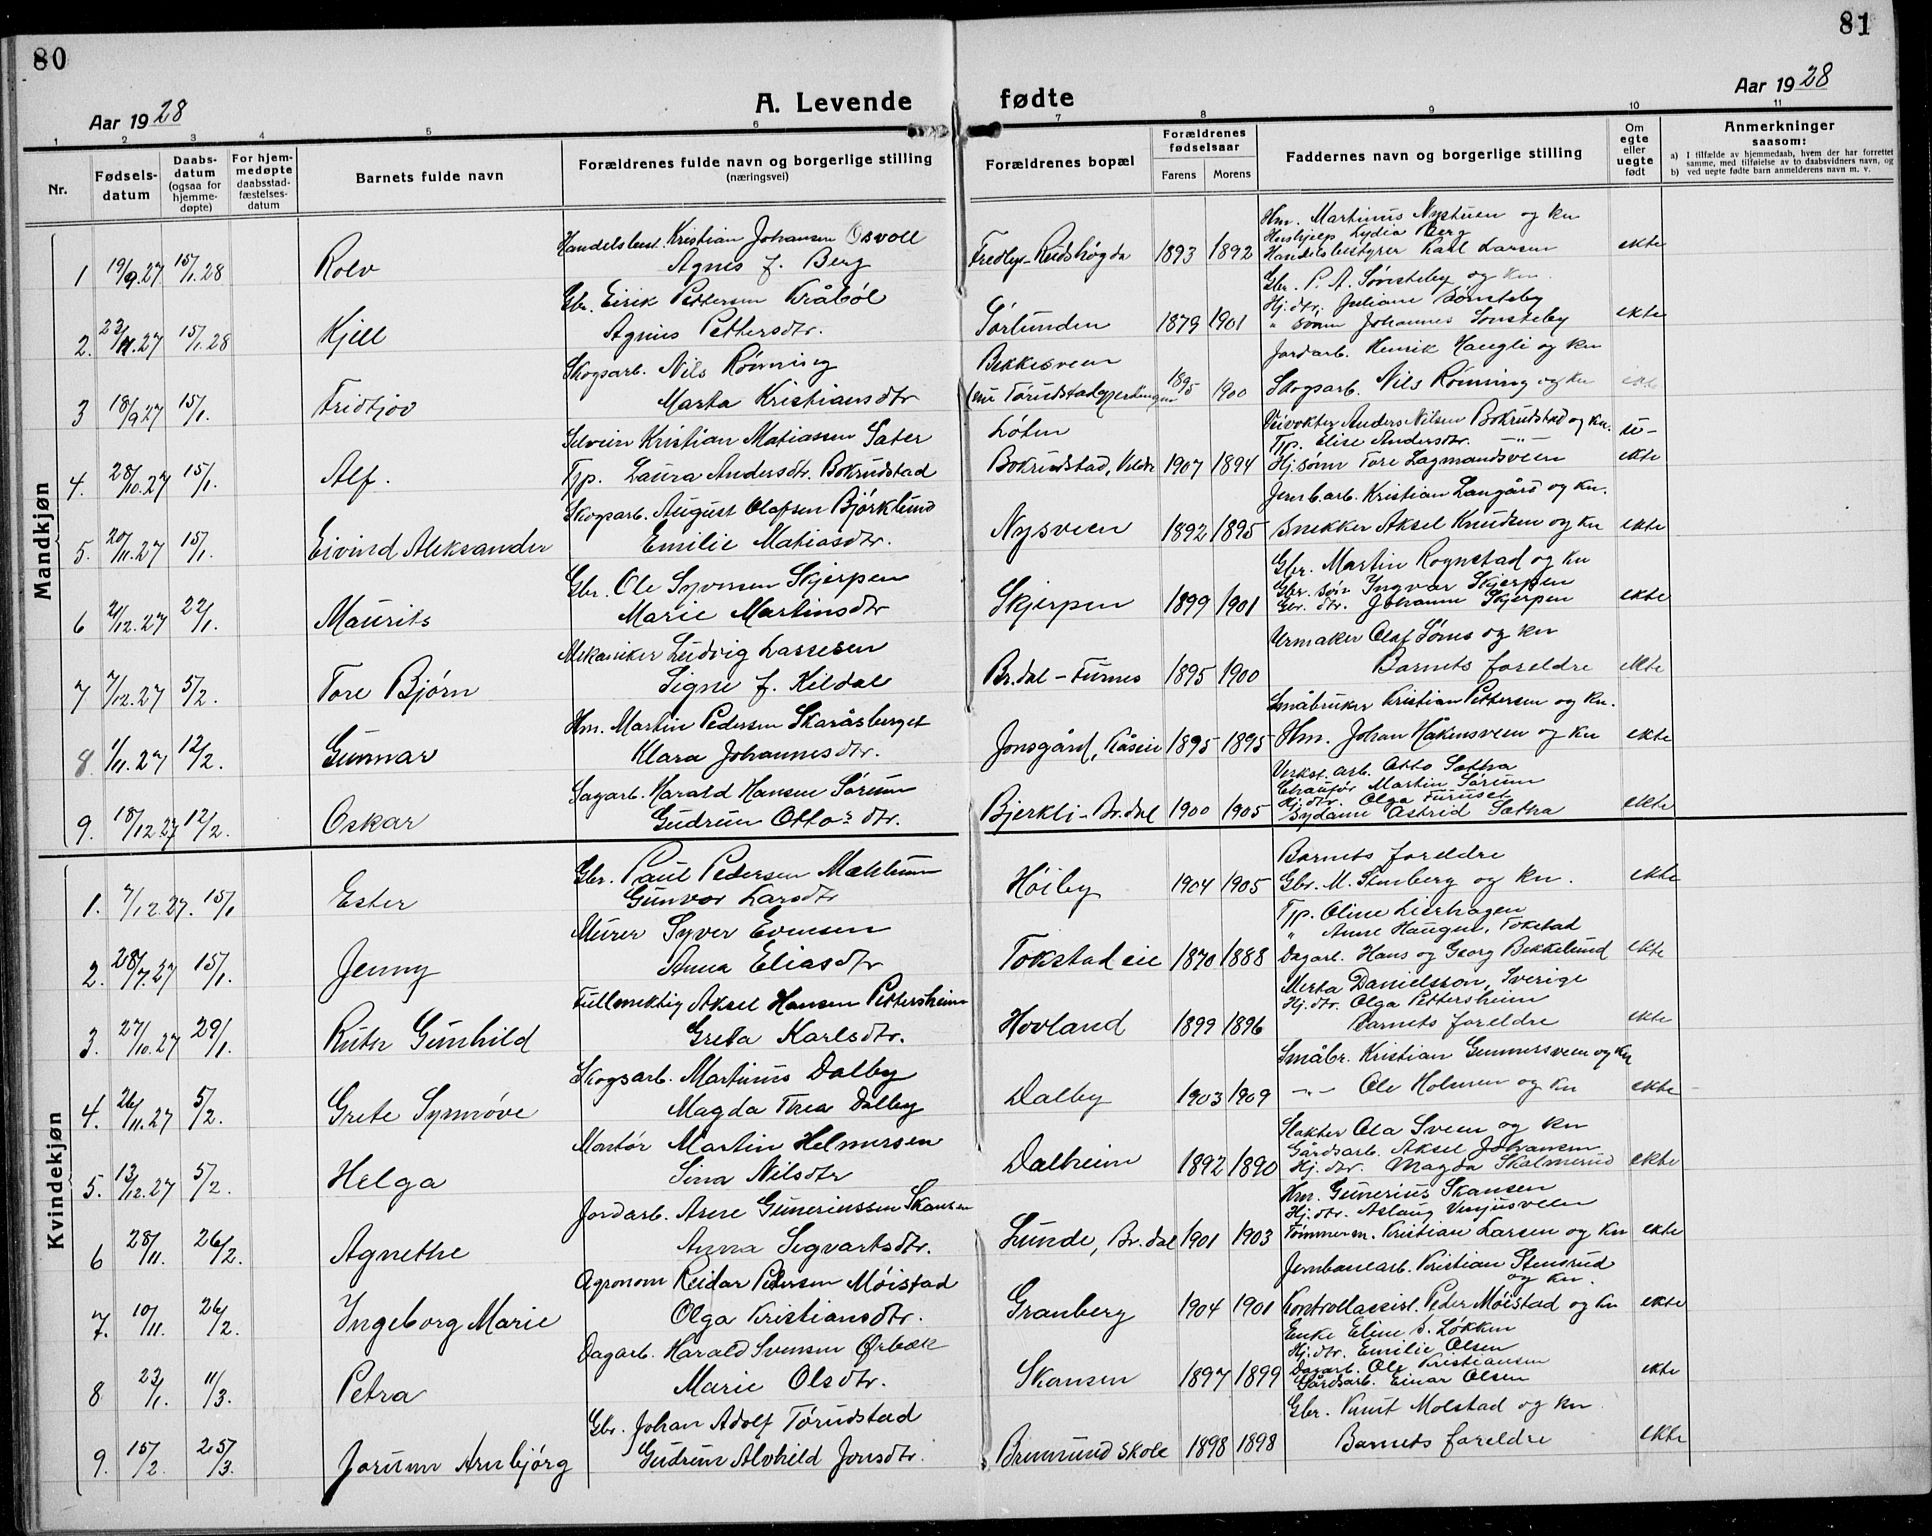 80
81
Aar 1928
A. Levende
fødte
Aar 1928
1 2 3 4 5 6 7 8 9 10 11
Nr.
Fødsels-
datum
Daabs-
datum
(ogsaa for
hjemme-
døpte)
For hjem-
medøpte
daabsstad-
fæstelses-
datum
Barnets fulde navn
Forældrenes fulde navn og borgerlige stilling
(næringsvei)
Forældrenes bopæl
Forældrenes
fødselsaar
Farens Morens
Faddernes navn og borgerlige stilling
Om
egte
eller
uegte
født
Anmerkninger
saasom:
a) I tilfælde av hjemmedaab, hvem der har forrettet
samme, med tilføielse av to daabsvidners navn, og
b) ved uegte fødte barn anmelderens navn m. v.
Mandkjøn
Handelsbest. Kristian Johansen Osvoll
Hm. Martinus Nystuen og kn
Hushjelp Lydia Berg
1 19/9.27 15/1.28 Rolv Agnes f. Berg Fredly-Rudshøgda 1893 1892 Handelsbestyrer Karl Larsen ekte
Gbr. Eirik Pettersen Kråbøl
Gbr. P. A. Sønsteby og kn.
Hj.dtr. Juliane Sønsteby
2. 23/11.27 15/1.28 Kjell Agnes Pettersdtr. Sørlunden 1879 1901 " sønn Johannes Sønsteby ekte
Skogsarb. Nils Rønning Bekkesveen Jordarb. Henrik Haugli og kn
3 18/9 27 15/1. Fridtjov Marta Kristiansdtr (nu Tørudstad 1895 1900 Skogsarb. Nils Rønning og kn ekte
Selveier Kristian Matiassen Sater Løten Veivokter Anders Nilsen Bokrudstad og kn. u-
Tjp. Elise Andersdtr. -"-
4. 28/10.27 15/1. Alf. Tjp. Laura Andersdtr. Bokrudstad Bokrudstad, Veldre 1907 1894 Hj.sønn Tore Lagmandsveen ekte
Skogsarb. August Olafsen Bjørklund Jernb.arb. Kristian Langård og kn.
5. 20/11.27 15/1. Eivind Aleksander Emilie Matiasdtr. Nysveen 1892 1895 Snekker Aksel Knudsen og kn ekte
Gbr. Ole Syversen Skjerpen Gbr. Martin Rognstad og kn
Gbr. søn Ingvar Skjerpen
6 21/12.27 22/1. Maurits Marie Martinsdtr Skjerpen 1899 1901 Gbr. dtr. Johanne Skjerpen ekte
Mekaniker Ludvig Lassesen Urmaker Olaf Sønes og kn
7 7/12.27 5/2. Tore Bjørn Signe f. Kildal Br.dal - Furnes 1895 1900 Barnets foreldre ekte
Hm. Martin Pedersen Skaråsberget Småbruker Kristian Pettersen og kn.
8. 1/11.27 12/2. Gunnar Klara Johannesdtr. Jonsgård, Kåsein 1895 1895 Hm. Johan Håkensveen og kn ekte
Sagarb. Harald Hansen Sørum Verkst. arb. Otto Sætha
Chaufør Martin Sørum
Hj.dtr. Olga Furuset
9. 18/12.27 12/2. Oskar Gudrun Otto's dtr. Bjerkli - Br.dal 1900 1905 Bydame Astrid Sætha ekte
Kvindekjøn
Gbr. Paul Pedersen Mæhlum Barnets foreldre
1. 7/12.27. 15/1 Ester Gunvor Larsdtr Høiby 1904 1905 Gbr. M. Stenberg og kn. ekte
Murer Syver Evensen Tjp. Oline Lierhagen
" Anne Haugen, Tokstad
2. 28/7.27 15/1. Jenny Anna Eliasdtr Tokstad eie 1870 1888 Dagarb. Hans og Georg Bekkelund ekte
Fullmektig Aksel Hansen Pettersheim Merta Danielsson, Sverige
Hj.dtr. Olga Pettersheim
3. 27/10.27 29/1. Ruth Gunhild Greta Karlsdtr. Hovland 1899 1896 Barnets foreldre ekte
Skogsarb. Martinus Dalby Småbr. Kristian Gunnersveen og kn
4. 26/11.27 5/2. Grete Synnøve Magda Thea Dalby Dalby 1903 1909 -"- Ole Holmen og kn ekte
Montør Martin Helmersen Slakter Ola Sveen og kn
Gårdsarb. Aksel Johansen
5. 13/12.27 5/2. Helga Sina Nilsdtr Dalheim 1892 1890 Hj. dtr. Magda Skalmerud ekte
Jordarb. Arne Guneriussen Skansen Hm. Gunerius Skansen
Hj.dtr. Aslaug Vinjusveen
6 28/11. 26/2. Agnethe Anna Sigvartsdtr. Lunde, Br.dal 1901 1903 Tømmerm. Kristian Larsen og kn ekte
Agronom Reidar Pedersen Møistad Jernbanearb. Kristian Stensrud
og kn.
7. 10/11. 26/2. Ingeborg Marie Olga Kristiansdtr. Granberg 1904 1901 Kontrollassist. Peder Møistad og kn ekte
Dagarb. Harald Svensen Ørbæk Enke Eline S. Løkken
Hj.dtr. Emilie Olsen
Dagarb. Ole Kristiansen
8 22/1. 11/3. Petra Marie Olsdtr. Skansen 1897 1899 Gårdsarb. Einar Olsen ekte
Gbr. Johan Adolf Tørudstad Gbr. Knut Molstad og kn.
9. 15/2. 25/3. Jorunn Arnbjørg Gudrun Alvhild Jonsdtr. Brumund skole 1898 1898 Barnets foreldre ekte